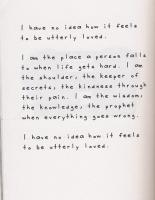 I have no idea how it feels
to be utterly loved.
I am the place a person falls
to when life gets hard. I am
the shoulder, the keeper of
secrets, the kindness through
their pain. I am the wisdom,
the knowledge, the prophet
when everything goes wrong.
I have no idea how it feels
to be utterly loved.